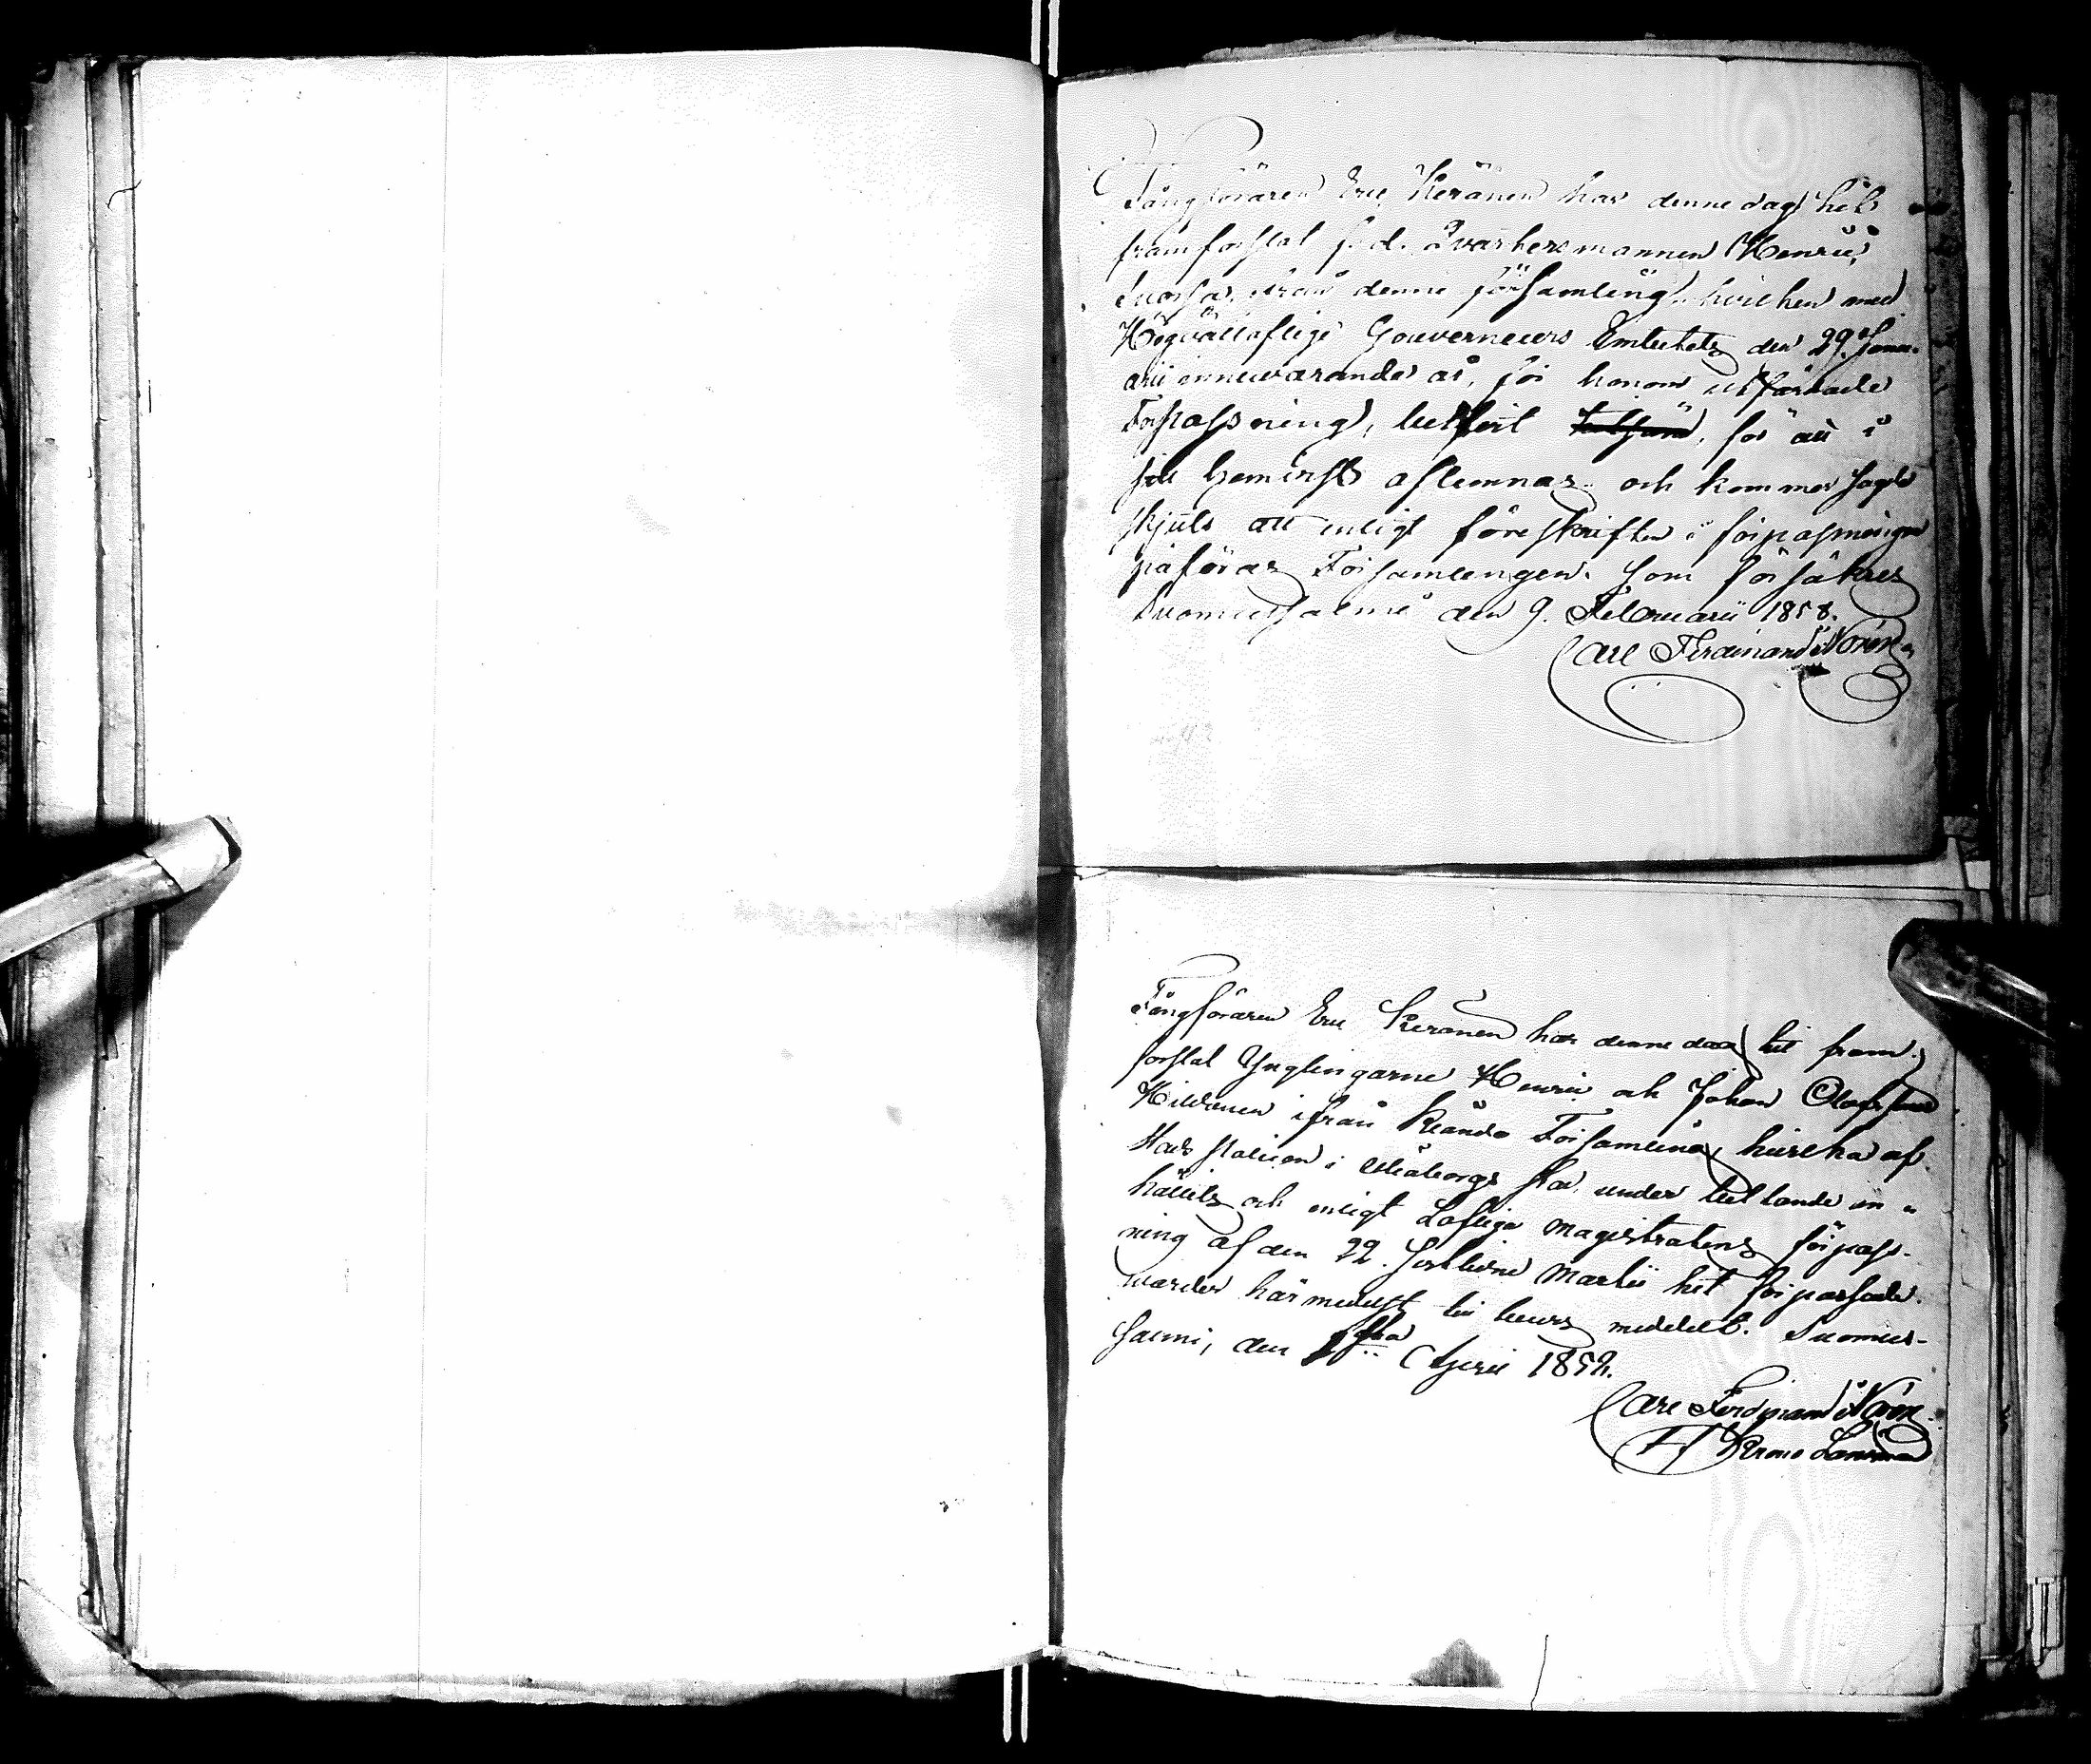 Fångföraren Eric Keränen har denne dag hit
framforslat f. d. Qvarkersmannen Henric
från denne församling, hvilken med
Högvälloflige Gouverneurs Embetets den 29. Janu-
arii innevarande år, för honom utfärdade
Förpassning, blifvit för att i
sitt hemvist aflemnas och kommer
skjuts att enligt föreskriften i förpassningen
påföras Församlingen. Som försäkras
Suomussalmi den 9. Februarii 1858.
Carl Ferdinand Norén
Fångföraren Eric Keränen har denne dag hit fram-
forslat Ynglingarne Henric och Johan Olofssöner
ifrån Kiando Församling, hvilka af
i Uleåborgs stad under
hållits och enligt Loflige Magistratens förpass-
ning af den 22. sistledne Martii hit förpassade.
warder härmedelst till bewis meddelt. Suomus-
salmi, den Aprill 1858.
Carl Ferdinand Norén
Krono Länsman